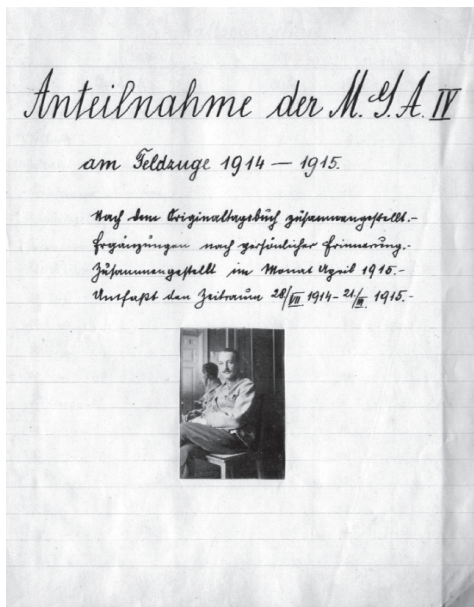 Anteilnahme der M.S.A. IV
am Feldzuge 1914 — 1915.
Nach dem Originaltagebuch zusammengestellt.-
Ergänzungen nach persönlicher Erinnerung.-
Zusammengestellt im Monat April 1915.-
Umfaßt den Zeitraum 28/VII 1914-21/III 1915.-